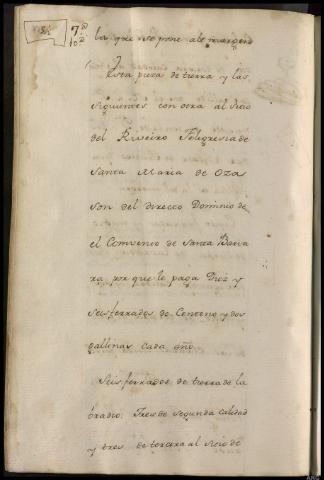 la que se pone al margen
Esta pieza de tierra y las
siguientes con otra al sitio
del Riveiro Feligresia de
Santa Maria de Oza
son del directo Dominio de
el Comvento de Santa Barva
ra, por que le paga Diez y
seis ferrados de Centeno, y dos
gallinas cada año
Seis ferrados de tierra de la
bradio: Tres de segunda calidad
y tres de tercera al sitio de